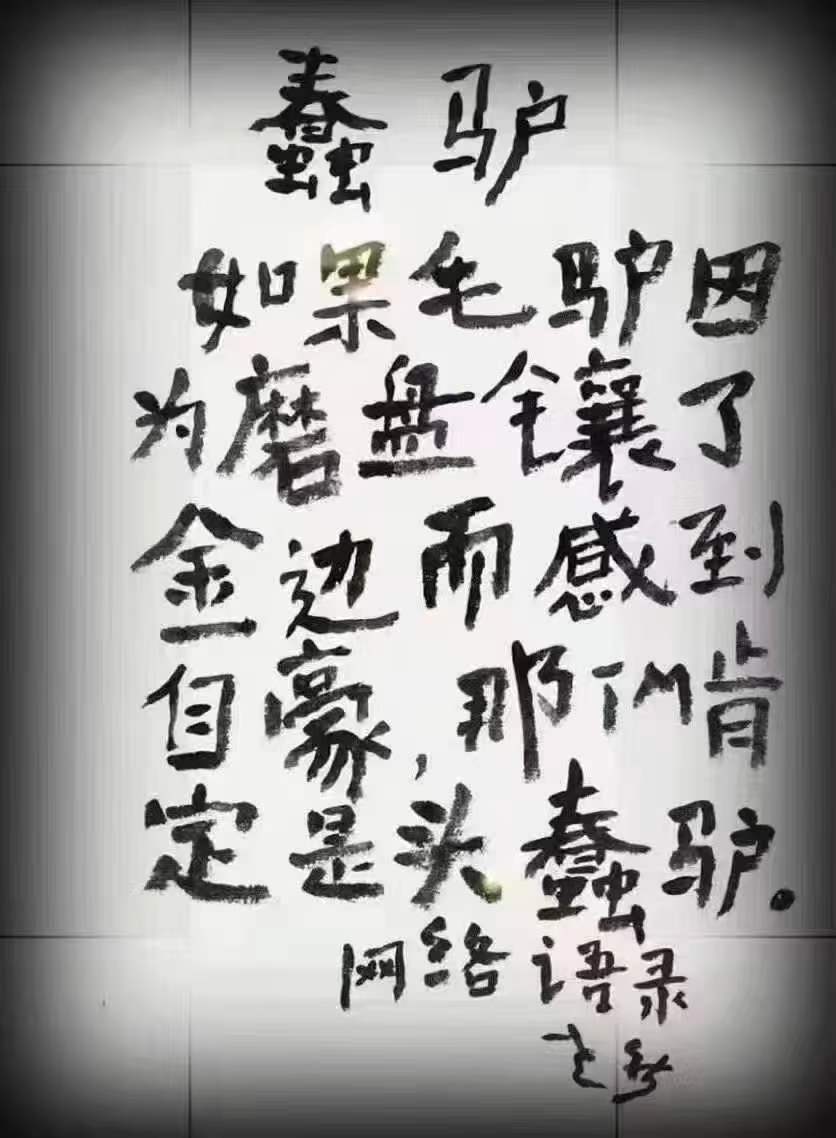 蠢驴
如果毛驴因
为磨盘镶了
金边而感到
自豪,那TM肯
定是头蠢驴。
网络语录